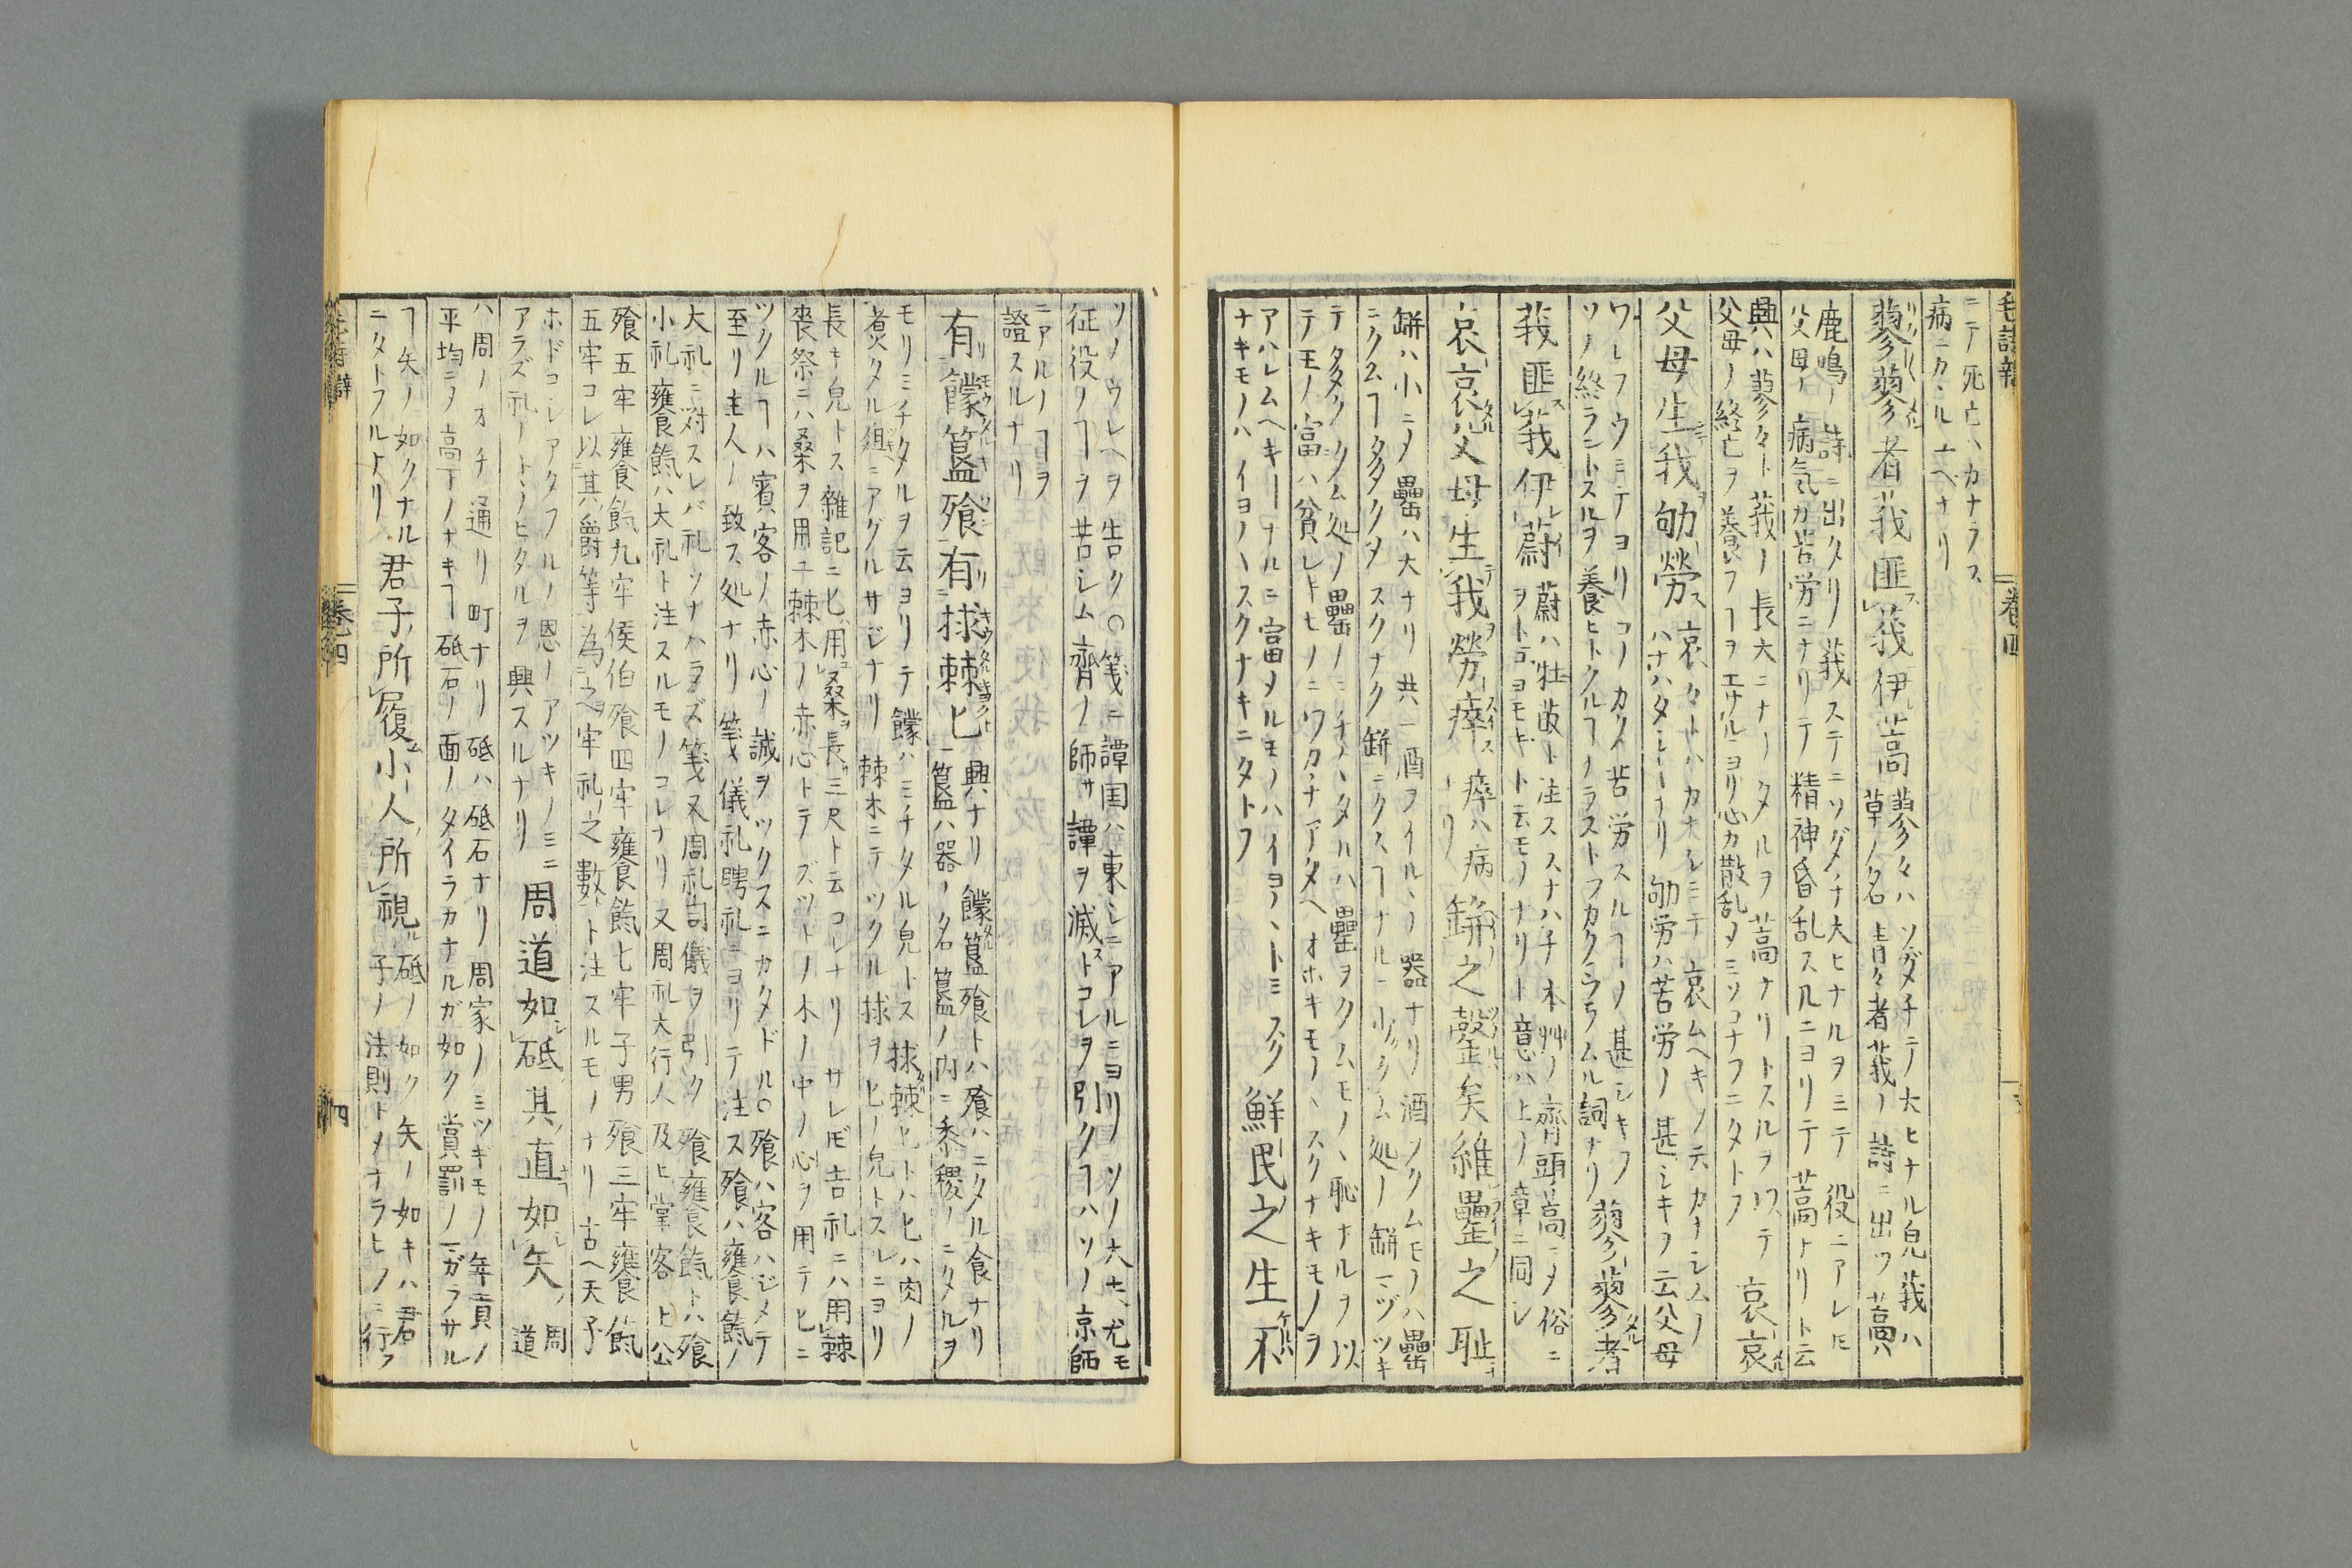 毛詩辨 巻四
ニテ死亡ハカナラス
病ニカヽルユヘナリ
蓼蓼者莪匪莪伊蒿 蓼々ハソダチテ大ヒナル皃莪ハ
草ノ名青々者莪ノ詩ニ出ツ蒿ハ
鹿鳴ノ詩ニ出タリ莪ステニソダチ大ヒナルヲミテ役ニアレ𪜈
父母ノ病気カ苦労ニナリテ精神昏乱スルニヨリテ蒿ナリト云
興ハ蓼々ト莪ノ長大ニナリタルヲ蒿ナリトスルヲ以テ 哀哀
父母ノ終亡ヲ養フヿヲエサルヨリ心カ散乱メミソコナフニタトフ
父母生我劬勞 哀々トハカナシミテ哀ムヘキノテカナシムノ
ハナハタシキナリ劬労ハ苦労ノ甚シキヲ云父母
ワレフウミテヨリコノカタ苦労スルヿノ甚シキフ 蓼蓼者
ソノ終ラントスルヲ養ヒトクルヿナラストフカクウラムル詞ナリ
莪匪莪伊蔚 蔚ハ牡菣ト注ススナハチ本艸ノ齊頭蒿ニメ俗ニ
ヲトコヨモギト云モノナリト意ハ上ノ章ニ同シ
哀哀父母生我勞瘁 瘁ハ病ナリ 缾之罄矣維罍之恥
缾ハ小ニメ罍ハ大ナリ共ニ酒ヲイルヽノ器ナリ酒ヲクムモノハ罍
ニクムヿ多クメスクナク缾ニクムヿナルニ少ククム処ノ缾ニヅツキ
テ多ククム処ノ罍ノミチ〳〵タルハ罍ヲクムモノヽ恥ナルヲ以
テモノ富ハ貧レトヒノニワカチアタヘオホキモノヽスクナキモノヲ
アハレムヘキヿナルニ富メルモノハイヨ〳〵トミスク 鮮民之生不
ナキモノハイヨ〳〵スクナキニタトフ
ソノウレヘヲ告ク○箋ニ譚国ハ東ニアルニヨリソノ大夫尤モ
征役ノヿヲ苦シム齊ノ師サ譚ヲ滅ストコレヲ引クヿハソノ京師
ニアルノヿヲ
證スルナリ
有饛簋飧有捄棘匕 興ナリ饛簋飧トハ飧ハニタル食ナリ
簋ハ器ノ名簋ノ内ニ黍稷ノニタルヲ
モリミチタルヲ云ヨリテ饛ハミチタル皃トス捄棘匕トハ匕ハ肉ノ
煮タル俎ニアグルサジナリ棘木ニテツクル捄ヲヒノ皃トスルニヨリ
長キ皃トス雜記ニ匕用桑長三尺ト云コレナリサレ𪜈吉礼ニハ用棘
喪祭ニハ桑ヲ用ユ棘木ノ赤心トテズツトノ木ノ中ノ心ヲ用テヒニ
ツクルヿハ賓客ノ赤心ノ誠ヲツクスニカタドル○飧ハ客ハジメテ
至リ主人ノ致ス処ナリ箋儀礼聘礼ニヨリテ注ス飧ハ饔飧餼ノ
大礼ニ対スレバ礼ソナハラズ箋又周礼司儀ヲ引ク飧饔餼トハ飧
小礼饔餼ハ大礼ト注スルモノコレナリ又周礼大行人及ヒ掌客上公
飧五牢饔餼九牢侯伯飧四牢饔餼七牢子男飧三牢饔餼
五牢コレ以其爵等為之牢礼之數ト注スルモノナリ古ヘ天子
ホドコシアタフルノ恩ノアツキノミニ 周道如砥其直如矢 周
アラズ礼ノトヽノヒタルヲ興スルナリ 道
ハ周ノオチ通リ町ナリ砥ハ砥石ナリ周家ノミツギモノ年貢ノ
平均ニメ高下ノナキヿ砥石ノ面ノタイラカナルガ如ク賞罰ノマガラサル
ヿ矢ノ如クナル 君子所履小人所視 砥ノ如ク矢ノ如キハ君
ニタトフルナリ 子ノ法則トメナラヒノミ行フ
毛詩辨 巻四 四